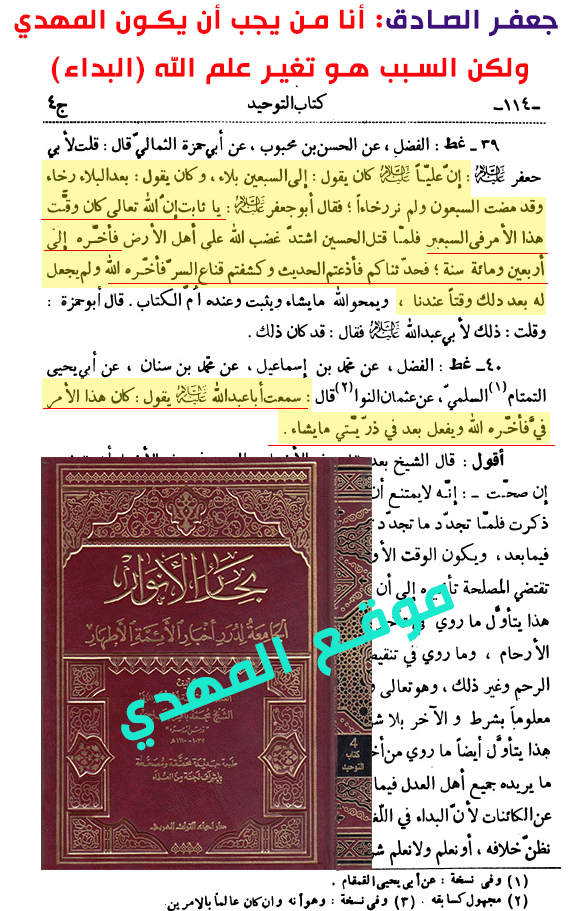 جعفر الصادق: أنا من يجب أن يكون المهدي
ولكن السبب هو تغير علم الله (البداء)
-١١٤- كتاب التوحيد ج٤
٣٩ـ غط : الفضل ، عن الحسن بن محبوب ، عن أبي حمزة الثماليّ قال : قلت لأبي
جعفر عليه السلام : إنّ عليّاً عليه السلام كان يقول : إلى السبعين بلاء ، وكان يقول : بعد البلاء رخاء
وقد مضت السبعون ولم نر رخاءاً ؛ فقال أبوجعفر عليه السلام : يا ثابت إنّ الله تعالى كان وقّت
هذا الأمر في السبعين فلمّا قتل الحسين اشتدّ غضب الله على أهل الأرض فأخّره إلى
أربعين ومائة سنة ؛ فحدّثناكم فأذعتم الحديث وكشفتم قناع السرّ فأخّره الله ولم يجعل
له بعد ذلك وقتاً عندنا ، ويمحو الله مايشاء ويثبت وعنده اُمّ الكتاب . قال أبوحمزة :
وقلت : ذلك لأبي عبدالله عليه السلام فقال : قد كان ذلك .
٤٠ـ غط : الفضل ، عن محمّد بن إسماعيل ، عن محمّد بن سنان ، عن أبي يحيى
التمتام (١) السلميّ ، عن عثمان النوا (٢) قال : سمعت أباعبدالله عليه السلام يقول : كان هذا الأمر
فيّ فأخّره الله ويفعل بعد في ذرّيّتي مايشاء .
أقول : قال الشيخ بعد
إن صحّت ـ : إنّه لايمتنع أن
ذكرت فلمّا تجدّد ما تجدّد
فيما بعد ، ويكون الوقت الأو
تقتضي المصلحة تأخيره إلى أن
هذا يتأوّل ما روي في
الأرحام ، وما روي في تنقيص
الرحم وغير ذلك ، وهوتعالى و
معلوماً بشرط و الآخر بلا شر
هذا يتأوّل أيضاً ما روي من أخ
ما يريده جميع أهل العدل فيما
عن الكائنات لأنّ البداء في اللّغ
نظنّ خلافه ، أونعلم ولانعلم شر
بحار الأنوار
الجامعة لدرر أخبار الأئمة الأطهار
موقع المهدي
4
كتاب
التوحيد
(١) وفى نسخة : عن أبى يحيى القمقام .
(٢) مجهول كسابقه . (٣) وفى نسخة : وهو أنه وان كان عالماً بالامرين.